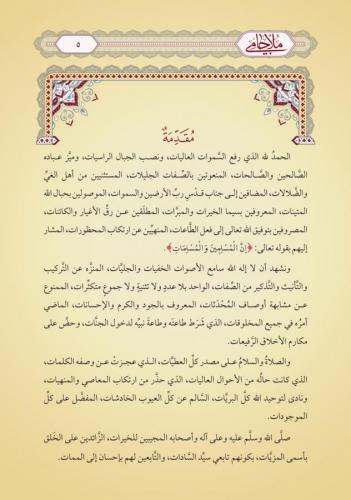 ملا جامي
٥
مُقَدِّمَةٌ
الحمدُ لله الذي رفع السَّموات العاليات، ونصب الجبال الراسيات، وميَّز عباده
الصَّالحين والصَّالحات، المنعوتين بالصِّفات الجليلات، المستثنيين من أهل الغَيِّ
والضَّلالات، المضافين إلى جناب قدْسِ ربِّ الأرضين والسموات، الموصولين بحبال الله
المتينات، المعروفين بسيما الخيرات والمبرَّات، المطلَقين عن رقِّ الأغيار والكائنات،
المصروفين بتوفيق الله تعالى إلى فعل الطَّاعات، المنهيِّين عن ارتكاب المحظورات، المشار
إليهم بقوله تعالى: ﴿إِنَّ الْمُسْلِمِينَ وَالْمُسْلِمَاتِ﴾.
ونشهد أن لا إله إلا الله سامع الأصوات الخفيات والجليَّات، المنزَّه عن التَّركيب
والتَّأنيث والتَّذكير من الصِّفات، الواحد بلا عددٍ ولا تثنيةٍ ولا جموعٍ متكثِّرات، الممنوع
عن مشابهة أوصاف المُحْدَثات، المعروف بالجود والكرم والإحسانات، الماضي
أمرُه في جميع المخلوقات، الذي شَرَط طاعتَه وطاعةَ نبيِّه لدخول الجنَّات، وحضَّ على
مكارم الأخلاق الرَّفيعات.
والصَّلاةُ والسَّلامُ على مصدر كلِّ العطيَّات، الذي عجزتْ عن وصفه الكلمات،
الذي كانت حالُه من الأحوال العاليات، الذي حذَّر من ارتكاب المعاصي والمنهيات،
ونادى لتوحيد الله كلَّ البريَّات، السَّالم عن كلِّ العيوب الخادشات، المفضَّل على كلِّ
الموجودات.
صلَّى الله وسلَّم عليه وعلى آله وأصحابه المجيبين للخيرات، الزَّائدين على الخَلق
بأسمى المزيَّات، بكونهم تابعي سيِّد السَّادات، والتَّابعين لهم بإحسان إلى الممات.